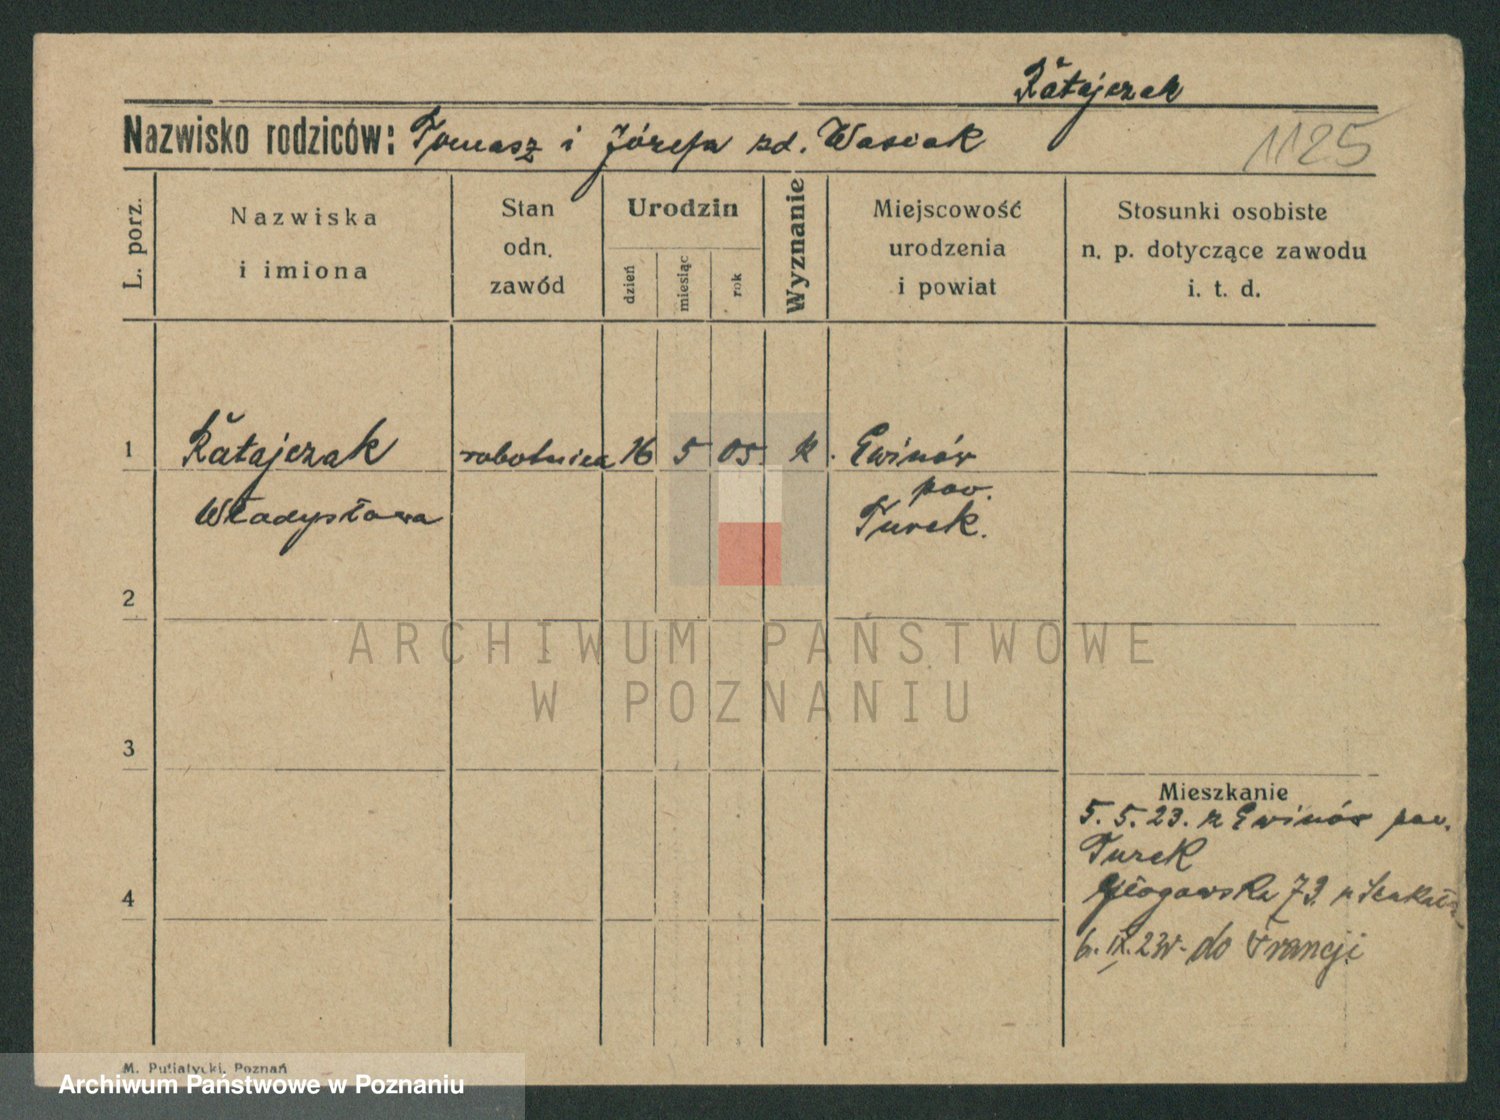 Ratajczak
Nazwisko rodziców: Tomasz i Józefa zd. Wasiak
1125
L. porz.
Nazwiska
i imiona
Stan
odn.
zawód
Urodzin
dzień
miesiąc
rok
Wyznanie
Miejscowość
urodzenia
i powiat
Stosunki osobiste
n. p. dotyczące zawodu
i. t. d.
1
Ratajczak
robotnica
16
5
05
k.
Ewinów
Władysława
pow.
Turek.
2
ARCHIWUM PAŃSTWOWE
W POZNANIU
3
Mieszkanie
5. 5. 23. z Ewinów pow.
Turek
4
Głogowska 73
6. IX. 23 do Francji
M. Putiatycki, Poznań
Archiwum Państwowe w Poznaniu